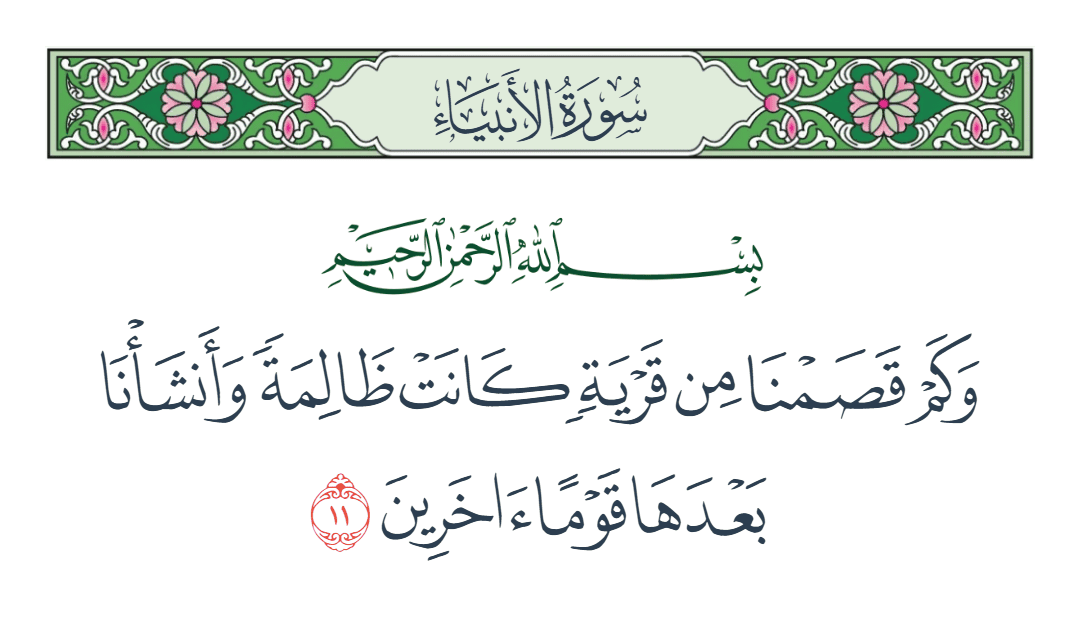 سُورَةُ الأَنبِيَاءِ
بِسْمِ ٱللَّهِ ٱلرَّحْمَٰنِ ٱلرَّحِيمِ
وَكَمْ قَصَمْنَا مِن قَرْيَةٍ كَانَتْ ظَالِمَةً وَأَنشَأْنَا
بَعْدَهَا قَوْمًا ءَاخَرِينَ ١١